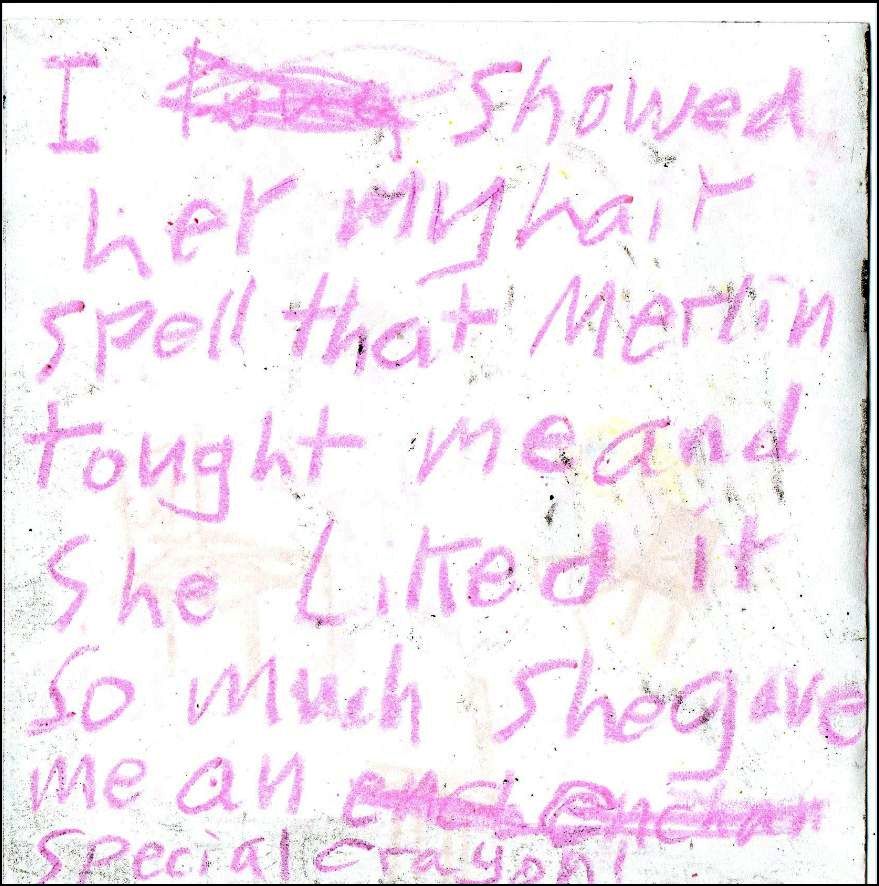 I showed
her my hair
spell that Merlin
tought me and
She Liked it
So much She gave
me an end enchan
special crayon!